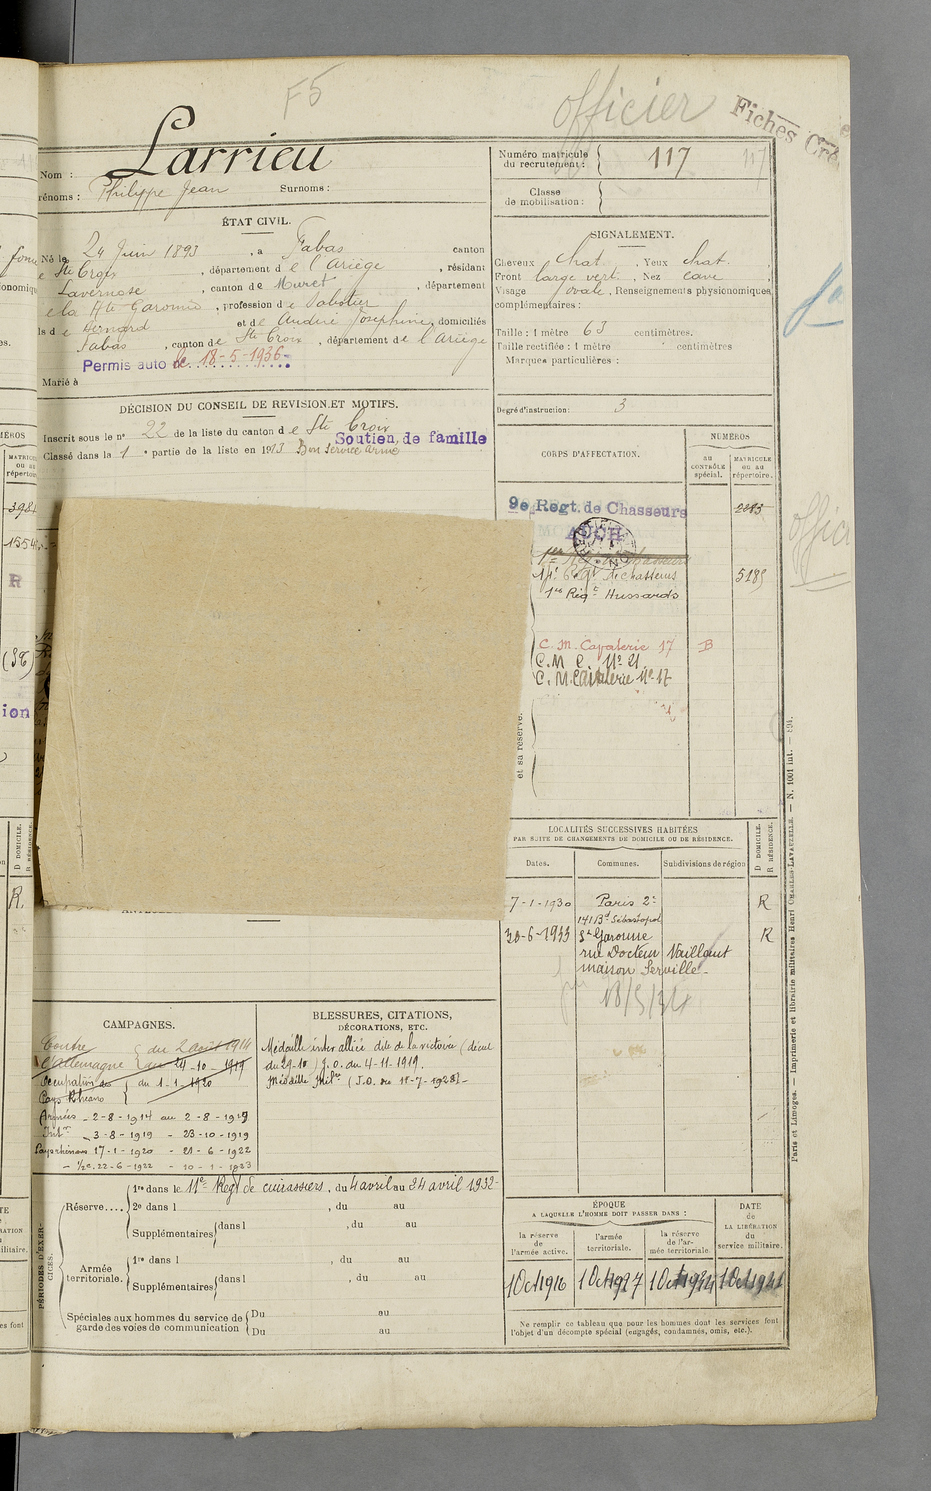 F5
officier
Fiches Cré
Nom : Larrieu
rénoms : Philippe Jean Surnoms :
Numéro matricule du recrutement : 117 117
Classe de mobilisation :
ÉTAT CIVIL.
Né le 24 Juin 1893, à Fabas canton
e Ste Croix, département de l'Ariège, résidant
Lavernose, canton de Muret, département
e la Hte Garonne, profession de Sabotier
ls de Bernard et de Audiré Joséphine, domiciliés
Fabas, canton de Ste Croix, département de l'Ariège
Permis auto le 18-5-1936
Marié à
SIGNALEMENT.
Cheveux chat. Yeux chat.
Front large vert. Nez cave
Visage ovale, Renseignements physionomiques
complémentaires :
Taille : 1 mètre 63 centimètres.
Taille rectifiée : 1 mètre centimètres
Marques particulières :
Degré d'instruction : 3
DÉCISION DU CONSEIL DE REVISION ET MOTIFS.
Inscrit sous le no 22 de la liste du canton de Ste Croix
Soutien de famille
Classé dans la 1e partie de la liste en 1913 Bon Service armé
CORPS D'AFFECTATION.
NUMÉROS
au CONTRÔLE spécial.
MATRICULE ou au répertoire.
9e Regt. de Chasseurs
AUCH
14e Régt de chasseurs 5185
1re Régt Hussards
C. M. Cavalerie 17 B
C. M. C. No 21.
C. M. Cavalerie No 17
et sa réserve.
LOCALITÉS SUCCESSIVES HABITÉES
PAR SUITE DE CHANGEMENTS DE DOMICILE OU DE RÉSIDENCE.
D DOMICILE.
R RÉSIDENCE.
Dates. Communes. Subdivisions de région
7-1-1930 Paris 2e R
141 Bd Sébastopol
30-6-1933 St Garonne R
rue Docteur Vaillant
maison Serville
18/5/34
CAMPAGNES.
Contre l'Allemagne du 2 août 1914 au 24-10-1919
Occupation des Pays Rhénans du 1-1-1920
Armées - 2-8-1914 au 2-8-1919
Intr - 3-8-1919 - 23-10-1919
Pays rhénans 17-1-1920 - 21-6-1922
- 1/2 c. 22-6-1922 - 10-1-1923
BLESSURES, CITATIONS,
DÉCORATIONS, ETC.
Médaille interalliée dite de la victoire (décret
du 29-10) J.O. du 4-11-1919.
Médaille Milre (J.O. du 18-7-1928)-
PÉRIODES D'EXERCICES.
Réserve.... 1re dans le 11e Regt de cuirassiers, du 4 avril au 24 avril 1932-
2e dans l , du au
Supplémentaires dans l , du au
Armée territoriale. 1re dans l , du au
Supplémentaires dans l , du au
Spéciales aux hommes du service de garde des voies de communication Du au
Du au
ÉPOQUE
A LAQUELLE L'HOMME DOIT PASSER DANS :
DATE de LA LIBÉRATION du service militaire.
la réserve de l'armée active.
l'armée territoriale.
la réserve de l'armée territoriale.
1 Oct 1916 1 Oct 1927
Ne remplir ce tableau que pour les hommes dont les services font
l'objet d'un décompte spécial (engagés, condamnés, omis, etc.).
Paris et Limoges. — Imprimerie et librairie militaires Henri CHARLES-LAVAUZELLE. — N. 1001 int. — 894.